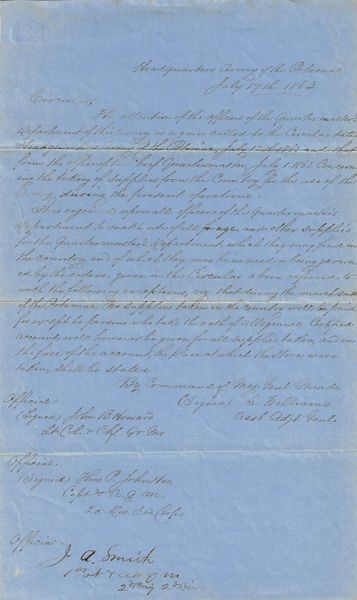 Headquarters Army of the Potomac
July 17th. 1863.
Circular,
The attention of the officers of the Quartermasters
Department of this Army is again called to the Circular dated
Headquarters Army of the Potomac, July 1863 and that
from the office of the Chief Quartermaster July 1. 1863 Concern-
ing the taking of Supplies from the Country for the use of the
Army during the present operations.
It is enjoined upon all officers of the Quartermasters
Department to make use of all forage, and other supplies
for the Quartermasters Department, which they may find in
the country and of which they may be in need, being govern-
ed by the orders, given in the Circular above referred to
with the following exceptions, viz, that during the march south
of the Potomac no supplies taken in the country will be paid
for except to persons who take the oath of Allegiance. Certified
accounts will however be given for all supplies taken, and on
the face of the account, the place at which the Stores were
taken, shall be stated
By Command of Maj. Genl. Meade
Official (Signed) S. Williams
(Signed) John B Howard Asst. Adjt. Genl.
Lt Col. & Chf Qr Mr
Official.
(Signed) Thos P Johnston
Capt & A. Q. M.
2d Div 2d Corps
Official.
J. A. Smith
1st Lt & A A Q M
2d Brig 2d Div